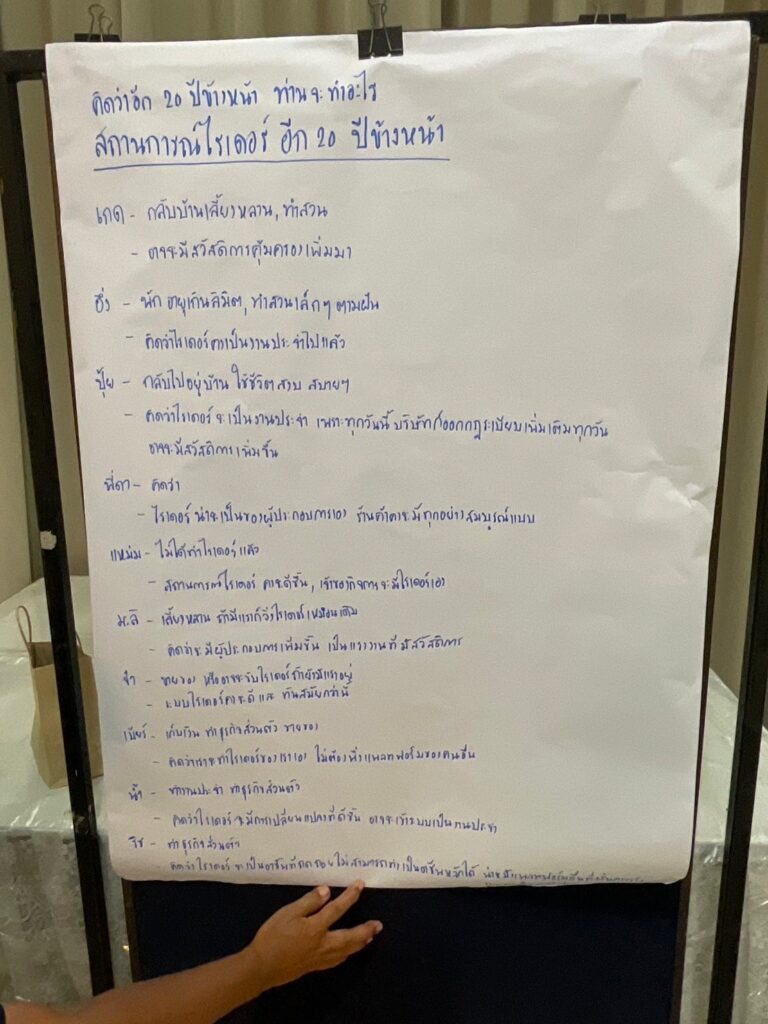 คิดว่าอีก 20 ปีข้างหน้า ท่านจะทำอะไร
สถานการณ์ไรเดอร์ อีก 20 ปีข้างหน้า
เกด - กลับบ้านเลี้ยงหลาน, ทำสวน
- อาจจะมีสวัสดิการคุ้มครองเพิ่มมา
อึ่ง - พัก อายุเกินลิมิต, ทำสวนเล็กๆ ตามฝัน
- คิดว่าไรเดอร์คงเป็นงานประจำไปแล้ว
ปุ้ย - กลับไปอยู่บ้าน ใช้ชีวิตสงบ สบายๆ
- คิดว่าไรเดอร์จะเป็นงานประจำ เพราะทุกวันนี้บริษัทก็ออกกฎระเบียบเพิ่มเติมทุกวัน
อาจจะมีสวัสดิการเพิ่มขึ้น
พี่ดา - คิดว่า
- ไรเดอร์ น่าจะเป็นของผู้ประกอบการเอง ร้านค้าคงจะมีทุกอย่างสมบูรณ์แบบ
แหม่ม - ไม่ได้ทำไรเดอร์แล้ว
- สถานการณ์ไรเดอร์ คงจะดีขึ้น, เจ้าของกิจการจะมีไรเดอร์เอง
มะลิ - เลี้ยงหลาน ถ้ามีแรงก็วิ่งไรเดอร์เหมือนเดิม
- คิดว่าจะมีผู้ประกอบการเพิ่มขึ้น เป็นแรงงานที่มีสวัสดิการ
จ๋า - ขายของ หรืออาจจะขับไรเดอร์ถ้ายังมีแรงอยู่
- ระบบไรเดอร์คงจะดีและ ทันสมัยกว่านี้
เบียร์ - เก็บเงิน ทำธุรกิจส่วนตัว ขายของ
- คิดว่าเราจะทำไรเดอร์ของเราเอง ไม่ต้องพึ่งแพลทฟอร์มของคนอื่น
น้ำ - ทำงานประจำ ทำธุรกิจส่วนตัว
- คิดว่าไรเดอร์จะมีการเปลี่ยนแปลงที่ดีขึ้น อาจจะเข้าระบบเป็นงานประจำ
วิช - ทำธุรกิจส่วนตัว
- คิดว่าไรเดอร์ จะเป็นอาชีพที่ถดถอย ไม่สามารถทำเป็นอาชีพหลักได้